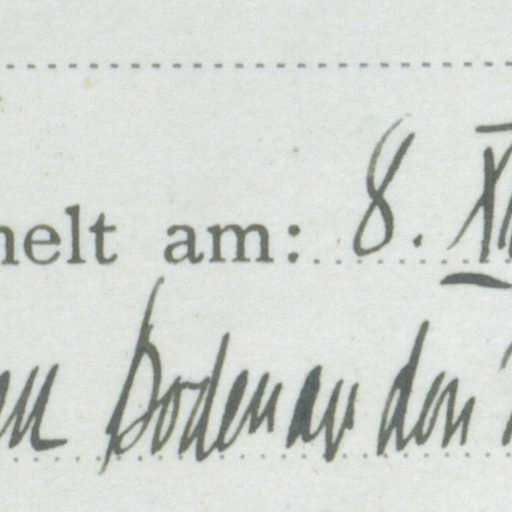 melt am: 8. XI
en Boden an den